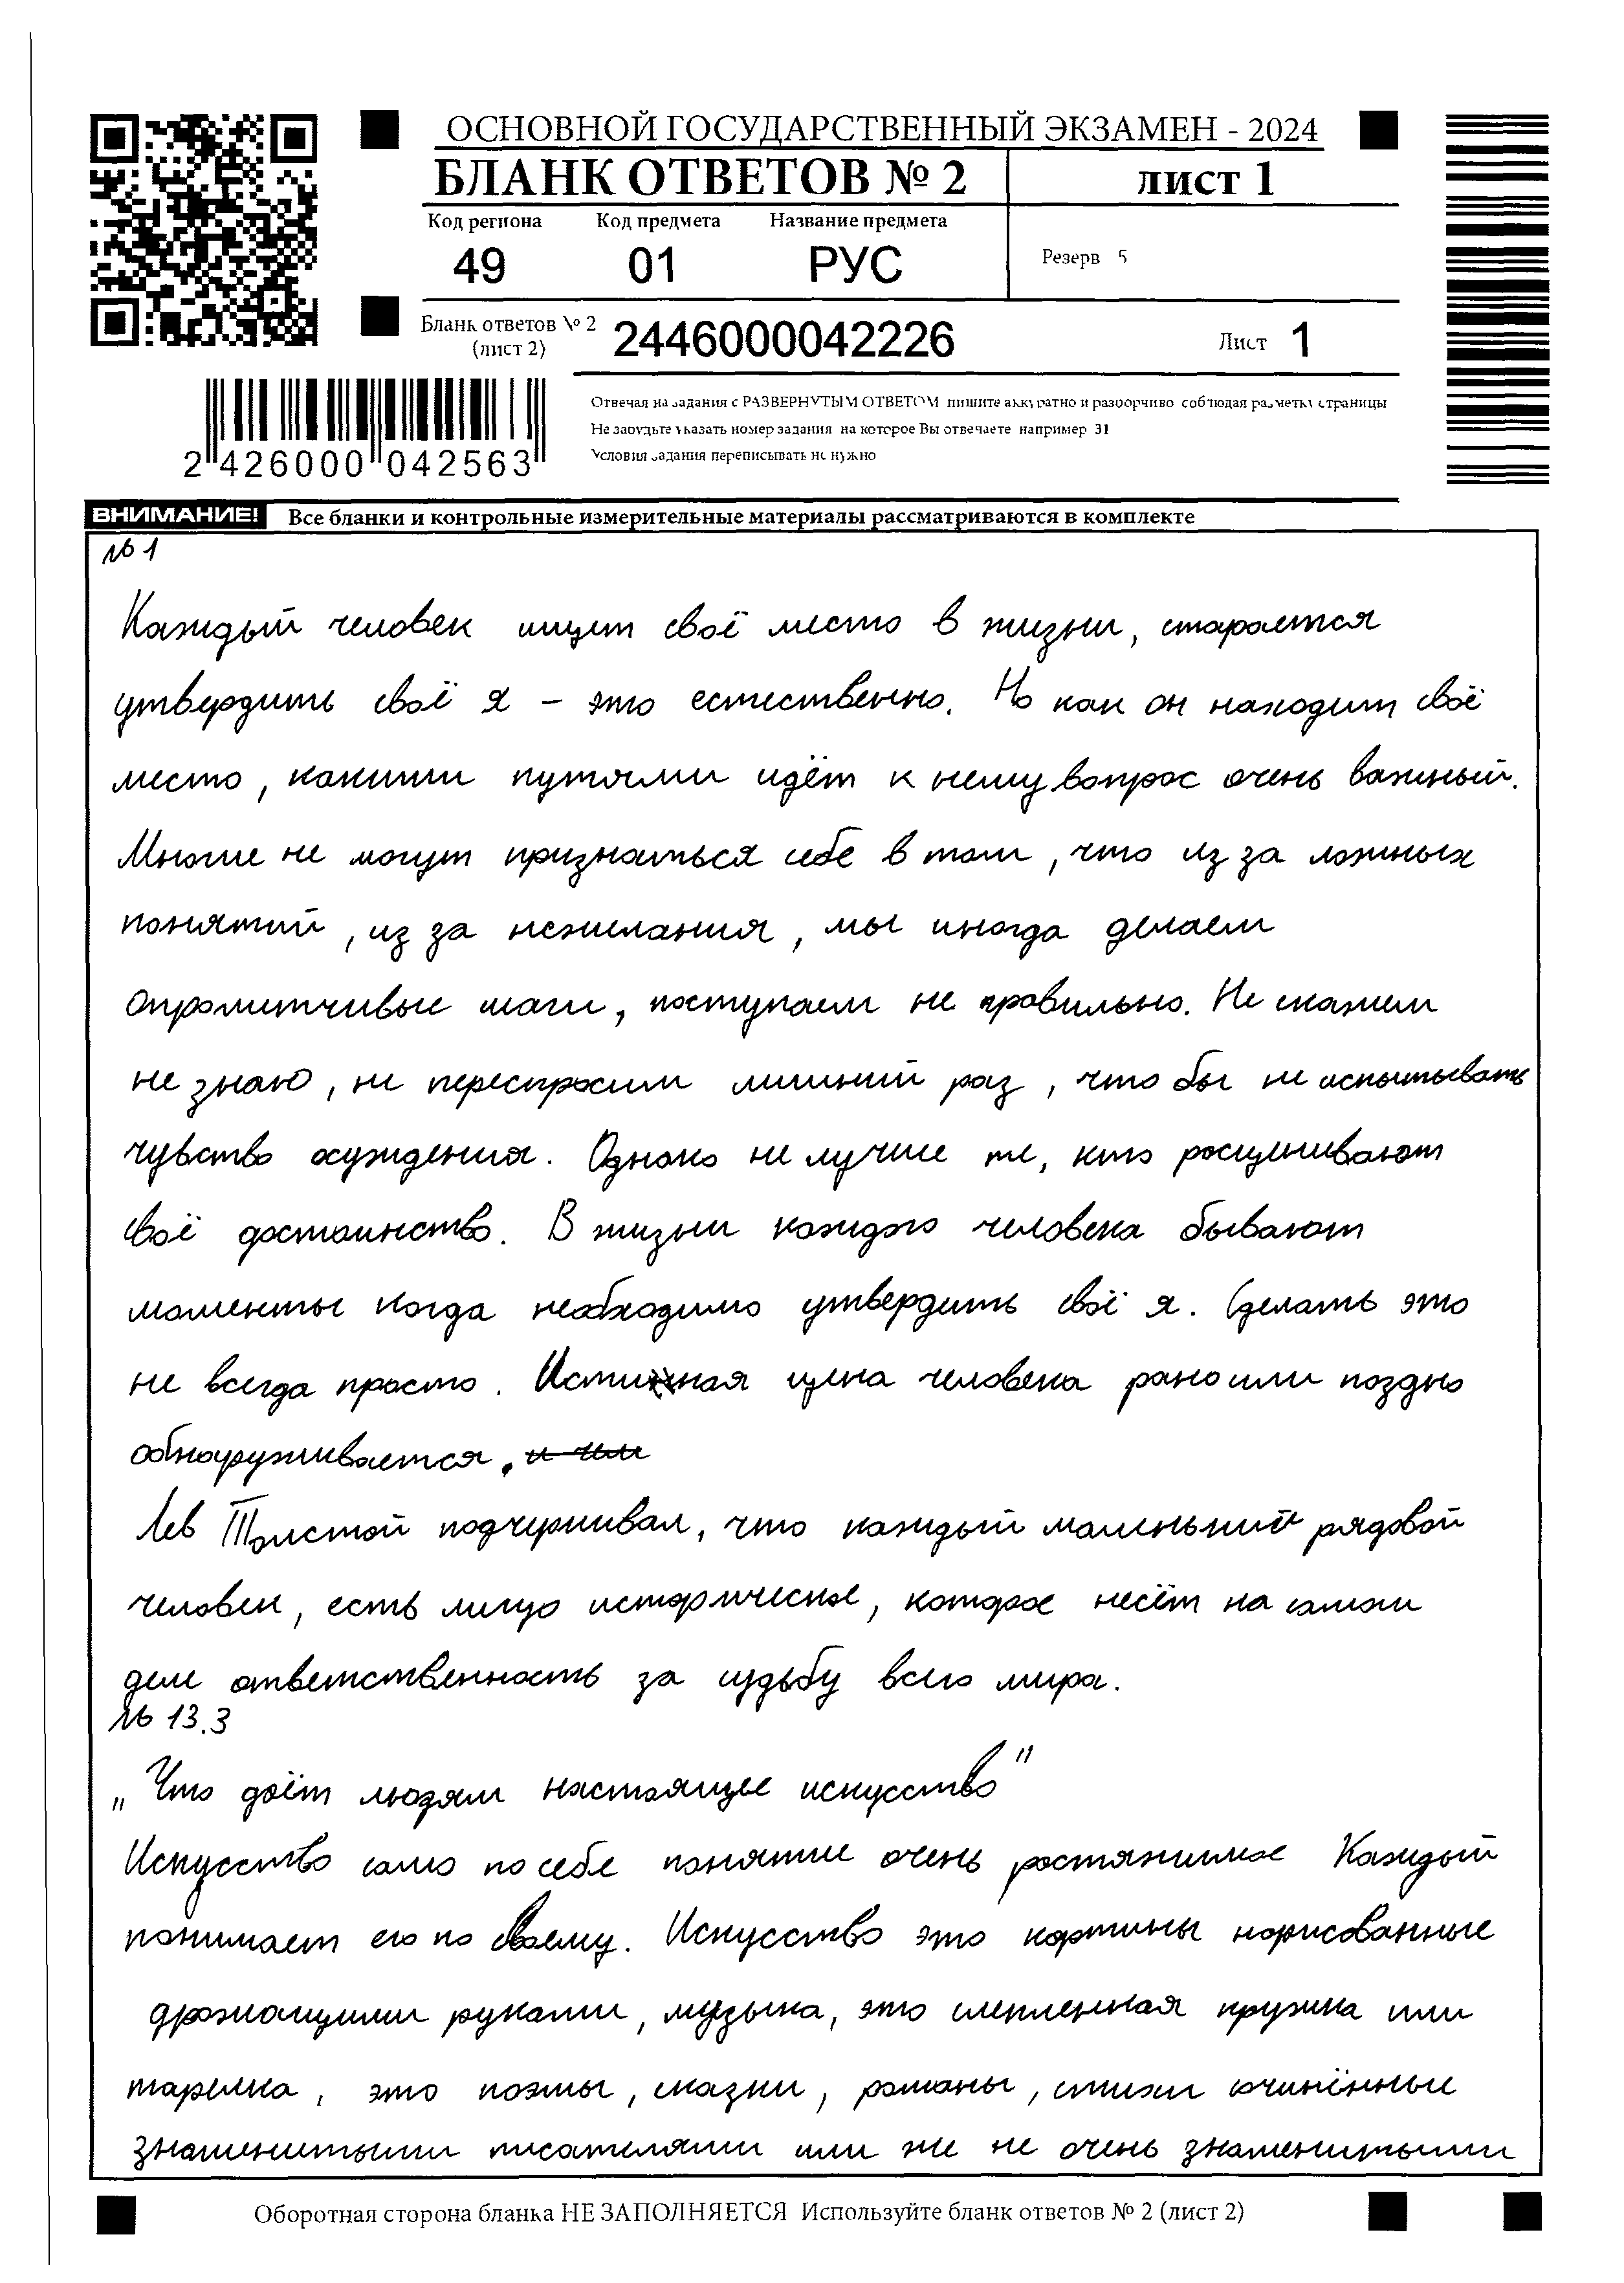 ОСНОВНОЙ ГОСУДАРСТВЕННЫЙ ЭКЗАМЕН - 2024
БЛАНК ОТВЕТОВ № 2
лист 1
Код региона Код предмета Название предмета
49 01 РУС
Резерв 5
Бланк ответов № 2
(лист 2)
2446000042226
Лист 1
Отвечая на задания с РАЗВЕРНУТЫМ ОТВЕТОМ пишите аккуратно и разборчиво соблюдая разметку страницы
Не забудьте указать номер задания на которое Вы отвечаете например 31
Условия задания переписывать не нужно
2 426000 042563
ВНИМАНИЕ! Все бланки и контрольные измерительные материалы рассматриваются в комплекте
№ 1
Каждый человек ищет своё место в жизни, старается
утвердить своё я - это естественно. Но как он находит своё
место, какими путями идёт к нему вопрос очень важный.
Многие не могут признаться себе в том, что из за ложных
понятий, из за нежелания, мы иногда делаем
опрометчивые шаги, поступаем не правильно. Не скажем
не знаю, не переспросим лишний раз, что бы не испытывать
чувство осуждения. Однако не лучше те, кто расценивают
своё достоинство. В жизни каждого человека бывают
моменты когда необходимо утвердить своё я. Сделать это
не всегда просто. Истинная цена человека рано или поздно
обноруживается.
Лев Толстой подчеркивал, что каждый маленький рядовой
человек, есть лицо историческое, которое несёт на самом
деле ответственность за судьбу всего мира.
№ 13.3
„Что даёт людям настоящее искусство"
Искусство само по себе понятие очень растяжимое Каждый
понимает его по своему. Искусство это картины нарисованные
дрожащими руками, музыка, это слепленная кружка или
тарелка, это поэмы, сказки, романы, стихи сочинённые
знаменитыми писателями или же не очень знаменитыми
Оборотная сторона бланка НЕ ЗАПОЛНЯЕТСЯ Используйте бланк ответов № 2 (лист 2)